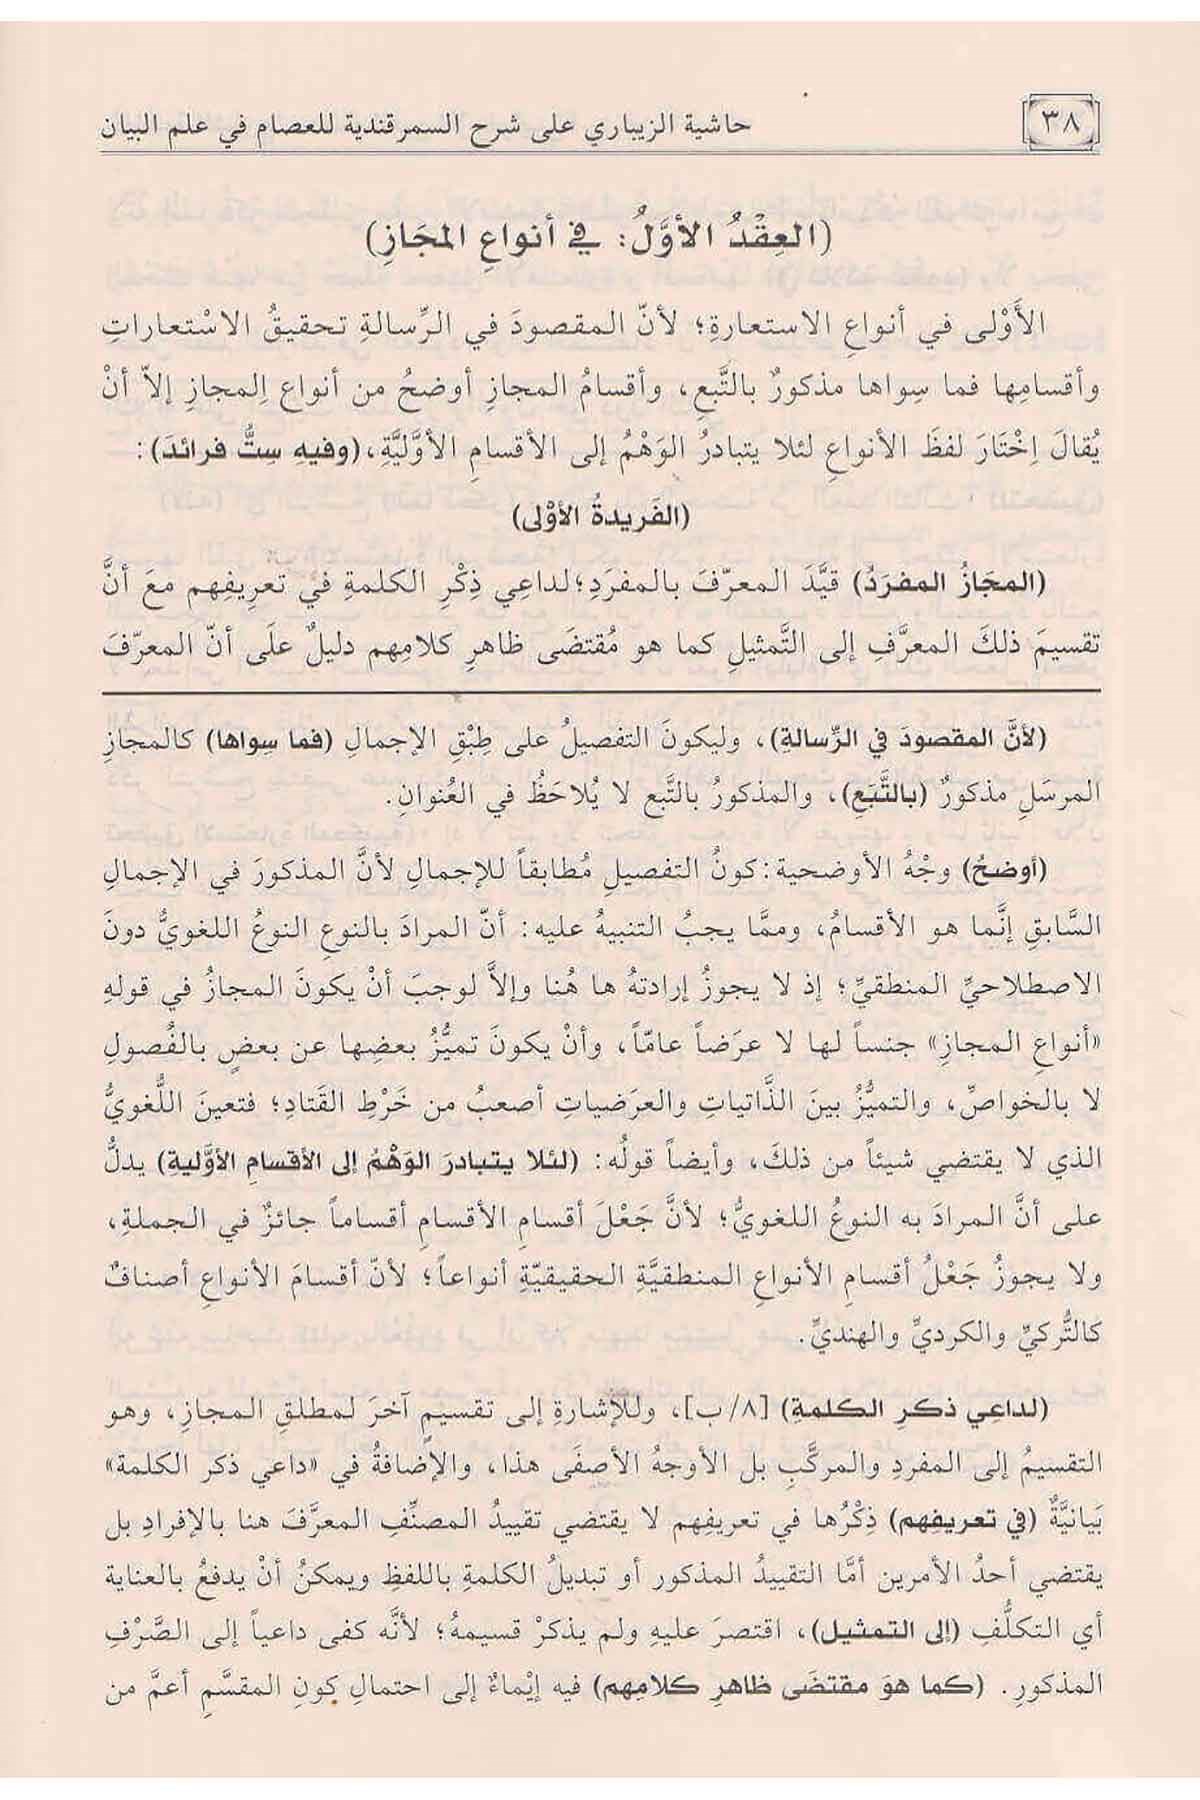 ٣٨
حاشية الزيباري على شرح السمرقندية للعصام في علم البيان
(العِقْدُ الأوَّلُ: في أنواعِ المجَازِ)
الأَوْلى في أنواعِ الاستعارةِ؛ لأنّ المقصودَ في الرِّسالةِ تحقيقُ الاسْتعاراتِ
وأقسامِها فما سِواها مذكورٌ بالتَّبعِ، وأقسامُ المجازِ أوضحُ من أنواع المجازِ إلاّ أنْ
يُقالَ اِخْتَارَ لفظَ الأنواعِ لئلا يتبادرُ الوَهْمُ إلى الأقسامِ الأوَّليَّةِ، (وفيهِ سِتُّ فرائدَ):
(الفَريدةُ الأوْلى)
(المجَازُ المفرَدُ) قيَّدَ المعرّفَ بالمفرَدِ؛ لداعِي ذِكْرِ الكلمةِ في تعريفِهم معَ أنَّ
تقسيمَ ذلكَ المعرَّفِ إلى التَّمثيلِ كما هو مُقتضَى ظاهرِ كلامِهم دليلٌ علَى أنّ المعرّفَ
(لأنَّ المقصودَ في الرِّسالةِ)، وليكونَ التفصيلُ على طِبْقِ الإجمالِ (فما سِواها) كالمجازِ
المرسَلِ مذكورٌ (بالتَّبَعِ)، والمذكورُ بالتَّبع لا يُلاحَظُ في العُنوانِ.
(أوضحُ) وجْهُ الأوضحية: كونُ التفصيلِ مُطابقاً للإجمالِ لأنَّ المذكورَ في الإجمالِ
السَّابقِ إنَّما هو الأقسامُ، وممَّا يجبُ التنبيهُ عليه: أنّ المرادَ بالنوعِ النوعُ اللغويُّ دونَ
الاصطلاحيِّ المنطقيِّ؛ إذ لا يجوزُ إرادتهُ ها هُنا وإلاَّ لوجبَ أنْ يكونَ المجازُ في قولهِ
«أنواعِ المجازِ» جنساً لها لا عرَضاً عامّاً، وأنْ يكونَ تميُّزُ بعضِها عن بعضٍ بالفُصولِ
لا بالخواصِّ، والتميُّزُ بينَ الذَّاتياتِ والعرَضياتِ أصعبُ من خَرْطِ القَتادِ؛ فتعينَ اللُّغويُّ
الذي لا يقتضي شيئاً من ذلكَ، وأيضاً قولُه: (لئلا يتبادرَ الوَهْمُ إلى الأقسامِ الأوَّليةِ) يدلُّ
على أنَّ المرادَ به النوعُ اللغويُّ؛ لأنَّ جَعْلَ أقسامِ الأقسامِ أقساماً جائزٌ في الجملةِ،
ولا يجوزُ جَعْلُ أقسامِ الأنواعِ المنطقيَّةِ الحقيقيّةِ أنواعاً؛ لأنّ أقسامَ الأنواعِ أصنافٌ
كالتُّركيِّ والكرديِّ والهنديِّ.
(لداعِي ذكرِ الكلمةِ) [٨/ب]، وللإشارةِ إلى تقسيمٍ آخرَ لمطلقِ المجازِ، وهو
التقسيمُ إلى المفردِ والمركَّبِ بل الأوجهُ الأصفَى هذا، والإضافةُ في «داعي ذكر الكلمة»
بَيانيَّةٌ (في تعريفِهم) ذِكْرُها في تعريفِهم لا يقتضي تقييدُ المصنِّفِ المعرَّفَ هنا بالإفرادِ بل
يقتضي أحدُ الأمرين أمَّا التقييدُ المذكور أو تبديلُ الكلمةِ باللفظِ ويمكنُ أنْ يدفعُ بالعناية
أي التكلُّفِ (إلى التمثيل)، اقتصرَ عليهِ ولم يذكرْ قسيمهُ؛ لأنَّه كفى داعياً إلى الصَّرْفِ
المذكورِ. (كما هوَ مقتضَى ظاهرِ كلامِهم) فيه إيْماءٌ إلى احتمالِ كونِ المقسَّمِ أعمَّ من